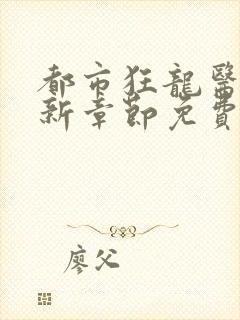 都市狂龍醫
新章節免費
廖父